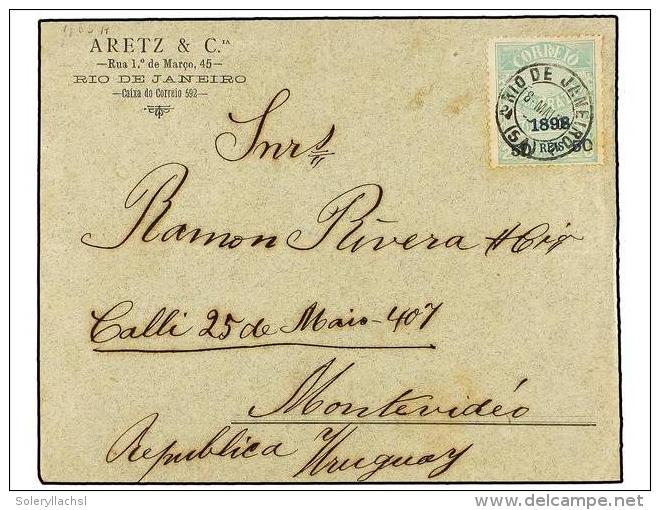 ARETZ & C.ia
—Rua 1.º de Março, 45—
RIO DE JANEIRO
—Caixa do Correio 592—
CORREIO
RIO DE JANEIRO
8-MAI
1898
50 REIS 50
Snrs
Ramon Rivera & Cia
Calli 25 de Maio-407
Montevidéo
Republica Uruguay
Soleryllachsl
delcampe.net